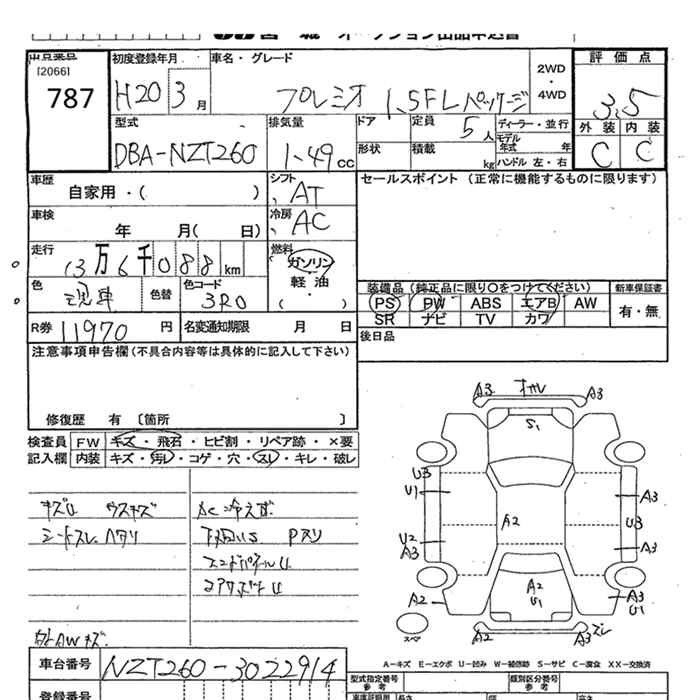 出品番号
[2066]
787
初度登録年月
H20 3月
車名・グレード
プレミオ 1.5FLパッケージ
2WD
・
4WD
評価点
3.5
外装 内装
C C
型式
DBA-NZT260
排気量
1.49cc
ドア
定員 5人
ディーラー・並行
モデル年式 年
形状
積載 kg
ハンドル 左・右
車歴
自家用・( )
シフト AT
セールスポイント (正常に機能するものに限ります)
車検 年 月( 日)
冷房 AC
走行 13万6千088km
燃料
ガソリン
軽油
・
( )
色
色替
色コード 3R0
装備品 (純正品に限り〇をつけてください)
新車保証書
PS PW ABS エアB AW
有・無
SR ナビ TV カワ
R券 11970円
名変通知期限 月 日
後日品
注意事項申告欄(不具合内容等は具体的に記入して下さい)
修復歴 有 〔箇所 〕
検査員記入欄
FW キズ・飛石・ヒビ割・リペア跡・×要
内装 キズ・汚レ・コゲ・穴・スレ・キレ・破レ
キズU ウスキズ
シートスレ、ヘタリ
AC冷えず
下回りS Pスリ
エンドパネルU
コアサポートU
外AWキズ
A3 A3
S1
U3
U1
A3
A2
U3
U2
A3
A3
A2
U1
A2
A3
U1
スペ
A2 A3 ズレ
A-キズ E-エクボ U-凹み W-補修跡 S-サビ C-腐食 XX-交換済
車台番号 NZT260-3022914
型式指定番号
参考
類別区分番号
参考
登録番号
車庫証明用
参考
長さ
幅
高さ